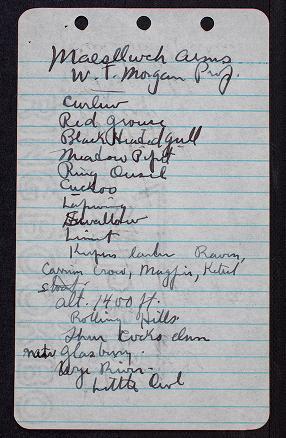 Maesllwch Arms
W. T. Morgan Prop.
Curlew
Red Grouse
Black Headed Gull
Meadow Pipit
Ring Ousel
Cuckoo
Lapwing
Swallow
Linnet
Raven,
Carrion Crow, Magpie, Kestrel
stoat.
alt. 1400 ft.
Rolling Hills
Three Cocks Inn
near Glasbury.
Wye River.
Little Owl